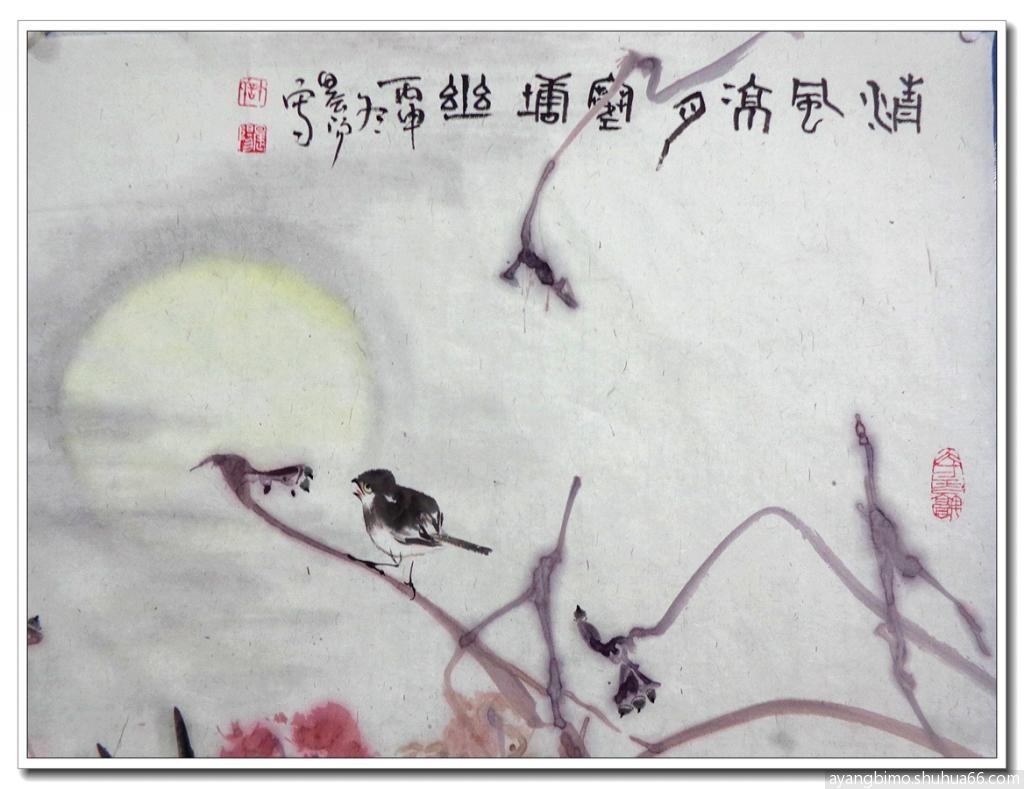 清風涼月野塘幽
丙申
冬
晨阳
写
ayangbimo.shuhua66.com